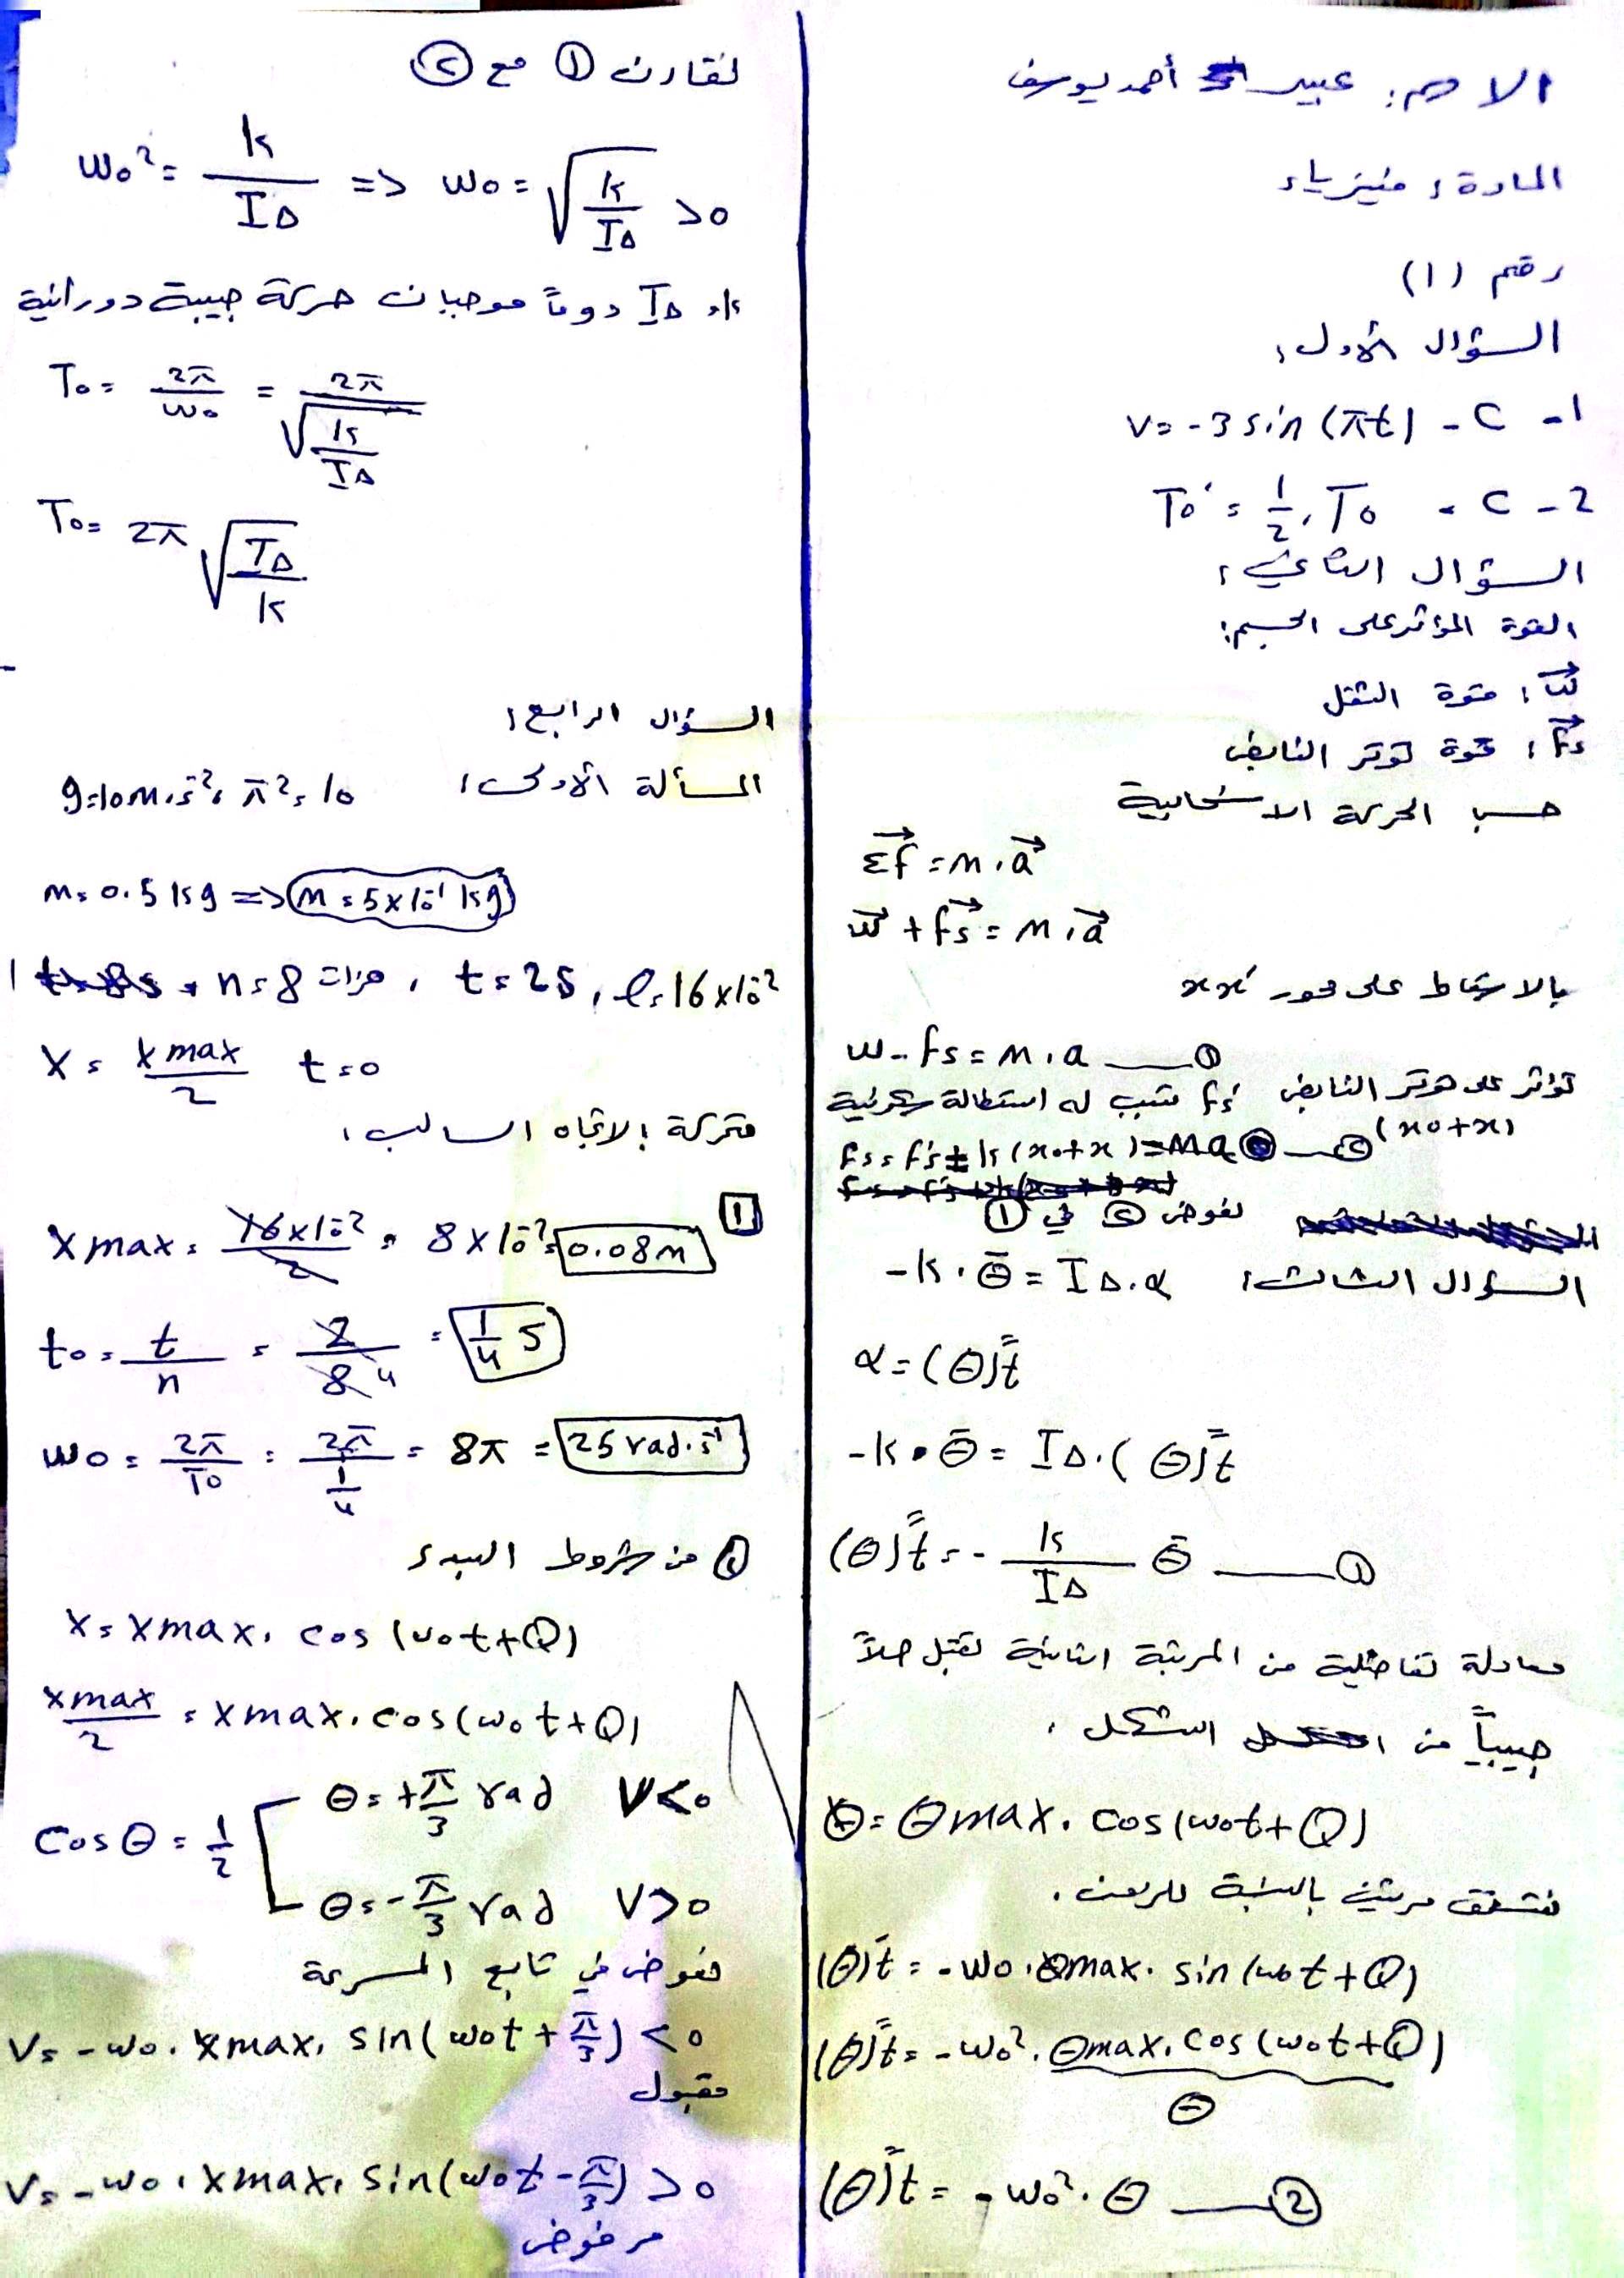 الاسم: عبير أحمد يوسف
المادة: فيزياء
رقم (1)
السؤال الأول:
1- C - v = -3 sin (πt)
2 - C - T0' = 1/2 . T0
السؤال الثاني:
القوة المؤثر على الجسم:
w⃗ : قوة الثقل
fs⃗ : قوة توتر النابض
حسب الحركة الانسحابية
Σf⃗ = m . a⃗
w⃗ + fs⃗ = m . a⃗
بالاسقاط على محور xx'
w - fs = m . a ــــ ①
تؤثر على توتر النابض fs' تسبب له استطالة سكونية
(x0+x)
fs = fs' = k (x0+x) = ma ــــ ②
نعوض ② في ①
السؤال الثالث:
-k . θ̄ = IΔ . α
α = (θ)''t
-k . θ̄ = IΔ . (θ)''t
(θ)''t = - k/IΔ θ̄ ــــ ①
معادلة تفاضلية من المرتبة الثانية تقبل حلاً
جيبياً من الشكل :
θ = θmax . cos (w0t + Q)
نشتق مرتين بالنسبة للزمن .
(θ)'t = - w0 . θmax . sin (w0t + Q)
(θ)''t = - w0² . θmax . cos (w0t + Q)
θ
(θ)''t = - w0² . θ ــــ ②
نقارن ① مع ②
w0² = k/IΔ => w0 = √(k/IΔ) > 0
k، IΔ دوماً موجبان حركة جيبية دورانية
T0 = 2π/w0 = 2π/√(k/IΔ)
T0 = 2π √(IΔ/k)
السؤال الرابع:
المسألة الأولى: g = 10 m.s⁻², π² = 10
m = 0.5 kg => m = 5 x 10⁻¹ kg
n = 8 هزات , t = 2s , l = 16 x 10⁻²
x = xmax/2 t = 0
متحركة بالاتجاه السالب:
1 xmax = 16x10⁻²/2 = 8 x 10⁻² = 0.08 m
t0 = t/n = 2/8 4 = 1/4 s
w0 = 2π/T0 = 2π/(1/4) = 8π = 25 rad.s⁻¹
Q من شروط البدء
x = xmax . cos (w0t + Q)
xmax/2 = xmax . cos (w0t + Q)
θ = +π/3 rad v < 0
cos θ = 1/2
θ = -π/3 rad v > 0
نعوض في تابع السرعة
v = - w0 . xmax . sin (w0t + π/3) < 0
مقبول
v = - w0 . xmax . sin (w0t - π/3) > 0
مرفوض